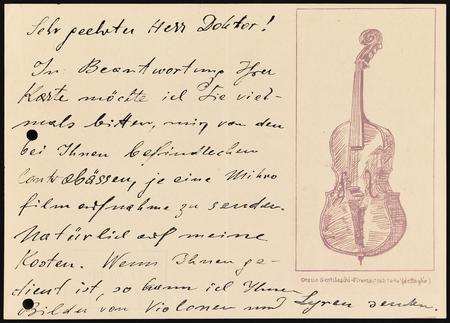 Sehr geehrter Herr Doktor!
In Beantwortung Ihrer
Karte möchte ich Sie viel-
mals bitten, mir von den
bei Ihnen befindlichen
Contrabässen, je eine Mikro
filmaufnahme zu senden.
Natürlich auf meine
Kosten. Wenn Ihnen ge-
dient ist, so kann ich Ihnen
Bilder von Violonen und Lyren senden.
Orazio Gentileschi - Firenze